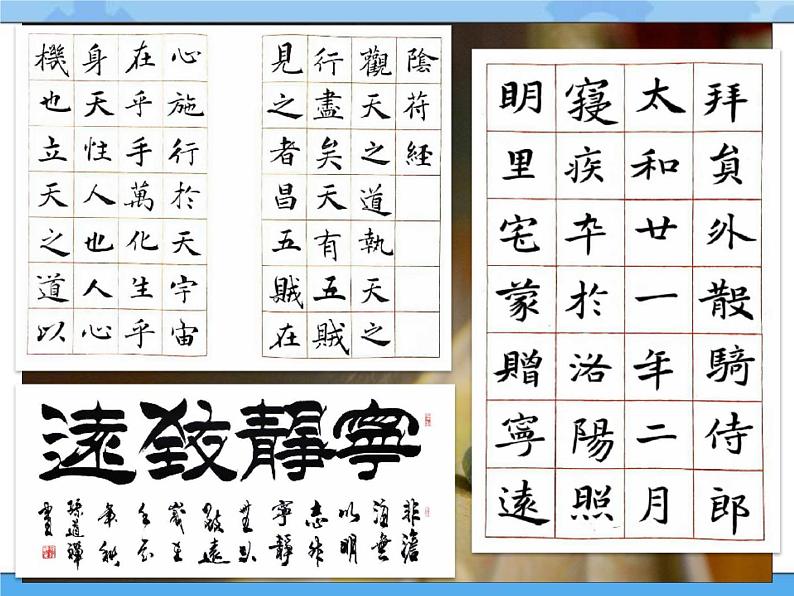 陰符經
觀天之道執天之
行盡矣天有五賊
見之者昌五賊在
心施行於天宇宙
在乎手萬化生乎
身天性人也人心
機也立天之道以
拜員外散騎侍郎
太和廿一年二月
寢疾卒於洛陽照
明里宅蒙贈寧遠
寧靜致遠
非澹
泊無
以明
志非
寧靜
無以
致遠